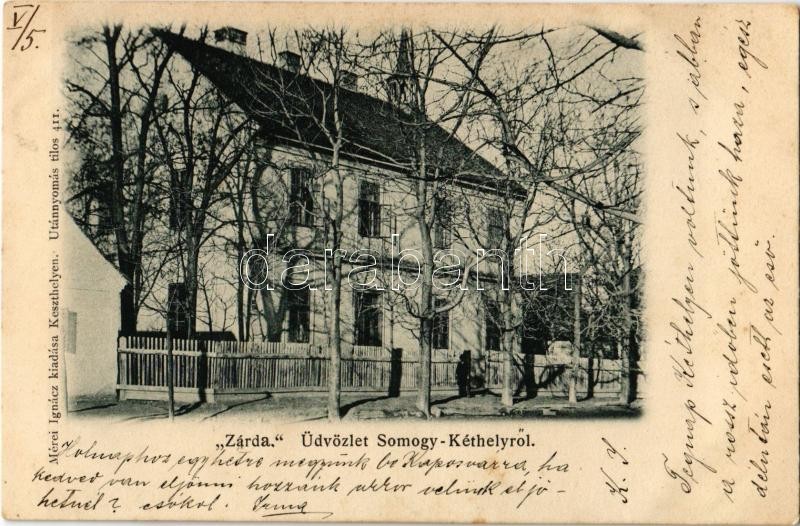 V/5.
Mérei Ignácz kiadása Keszthelyen. Utánnyomás tilos 411.
darabanth
„Zárda.“ Üdvözlet Somogy-Kéthelyről.
Holnaphoz egyhétre megyünk be Kaposvárra, ha
kedved van eljönni hozzánk akkor velünk eljö-
hetnél? csókol. Irma
K. I.
Tegnap Kéthelyen voltunk, s jabban
a rossz időben jöttünk haza, egész
délután esett az eső.